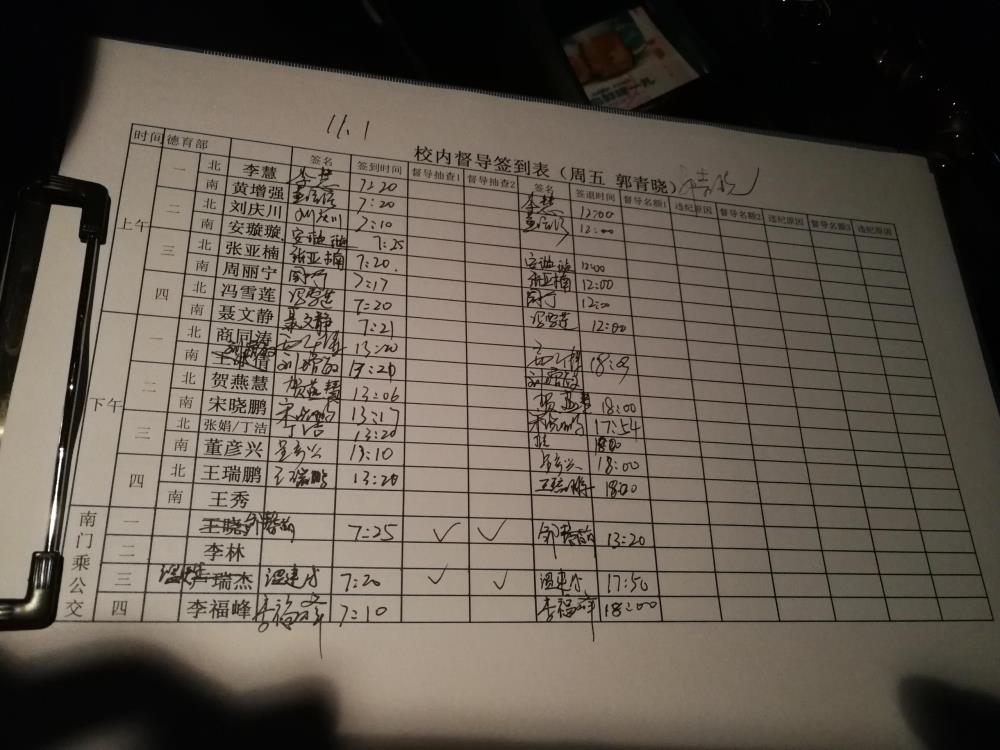 11.1
校内督导签到表（周五 郭青晓）
时间 德育部 签名 签到时间 督导抽查1 督导抽查2 签名 签退时间 督导名额1 违纪原因 督导名额2 违纪原因 督导名额3 违纪原因
上午 一 北 李慧 李慧 7:20 李慧 12:00
南 黄增强 7:20 12:00
二 北 刘庆川 刘庆川 7:10
南 安璇璇 安璇璇 7:25 安璇璇 12:00
三 北 张亚楠 张亚楠 7:20 张亚楠 12:00
南 周丽宁 7:17 12:00
四 北 冯雪莲 冯雪莲 7:20 冯雪莲 12:00
南 聂文静 聂文静 7:21
下午 一 北 商同涛 13:20
南 18:03
二 北 贺燕慧 贺燕慧 13:06 贺燕慧 18:00
南 宋晓鹏 宋晓鹏 13:17 宋晓鹏 17:54
三 北 张娟/丁洁 丁洁 13:20 18:00
南 董彦兴 13:10 18:00
四 北 王瑞鹏 王瑞鹏 13:20 王瑞鹏 18:00
南 王秀
南门乘公交 一 王晓 7:25 ✓ ✓ 13:20
二 李林
三 瑞杰 7:20 ✓ ✓ 17:50
四 李福峰 李福峰 7:10 李福峰 18:00